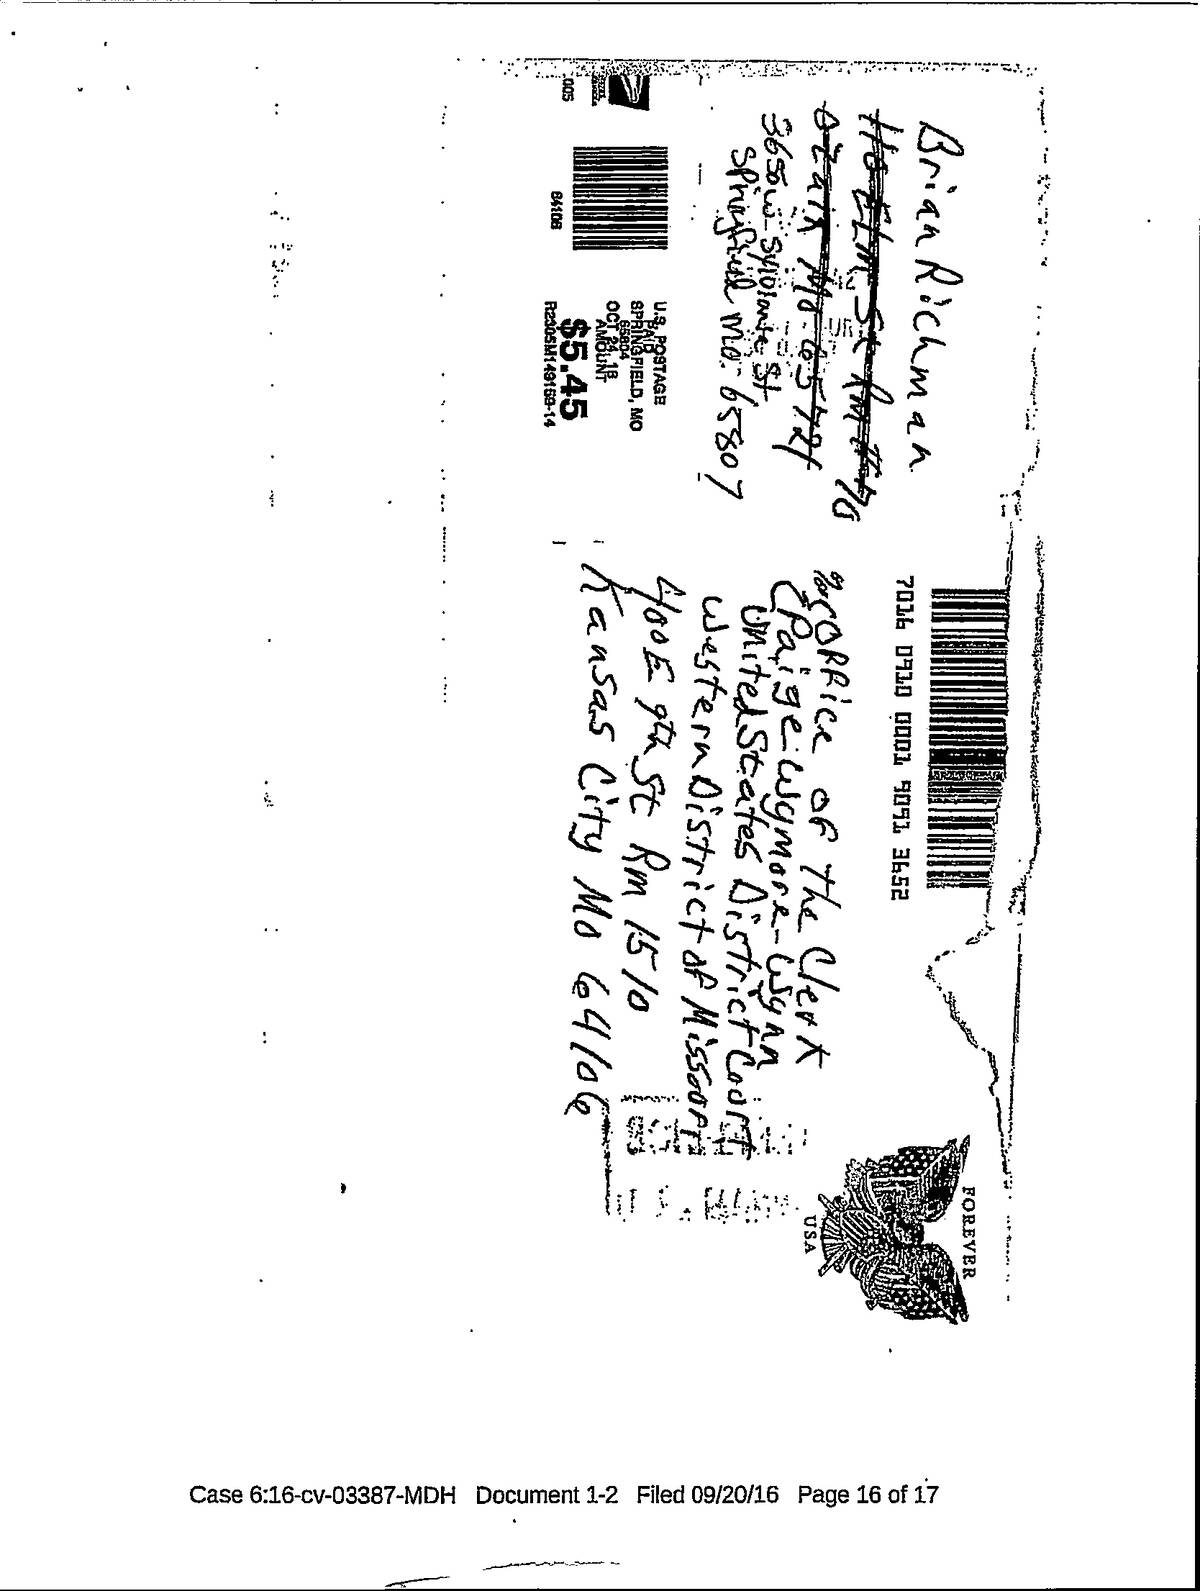 Brian Richman
110 Elm St Rm #70
Ozark Mo 65721
Springfield Mo. 65807
7016 0910 0001 9091 3652
% Office of the Clerk
Paige-Wymore-Wynn
United States District Court
Western District of Missouri
400 E 9th St Rm 1510
Kansas City Mo 64106
FOREVER
USA
U.S. POSTAGE
PAID
SPRINGFIELD, MO
65804
OCT 24, 18
AMOUNT
$5.45
R2305M149159-14
64106
Case 6:16-cv-03387-MDH Document 1-2 Filed 09/20/16 Page 16 of 17